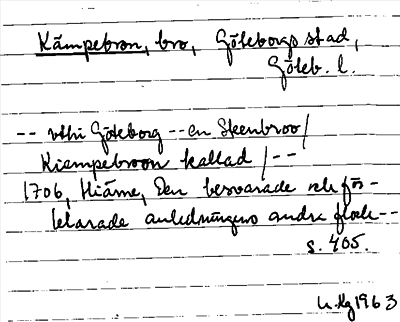 Kämpebron, bro, Göteborgs stad,
Göteb. l.
-- uthi Göteborg -- en Steenbroo/
Kiempebroon kallad /--
1706, Hiärne, Den besvarade och för-
klarade anledningens andra flock--
s. 405.
1963